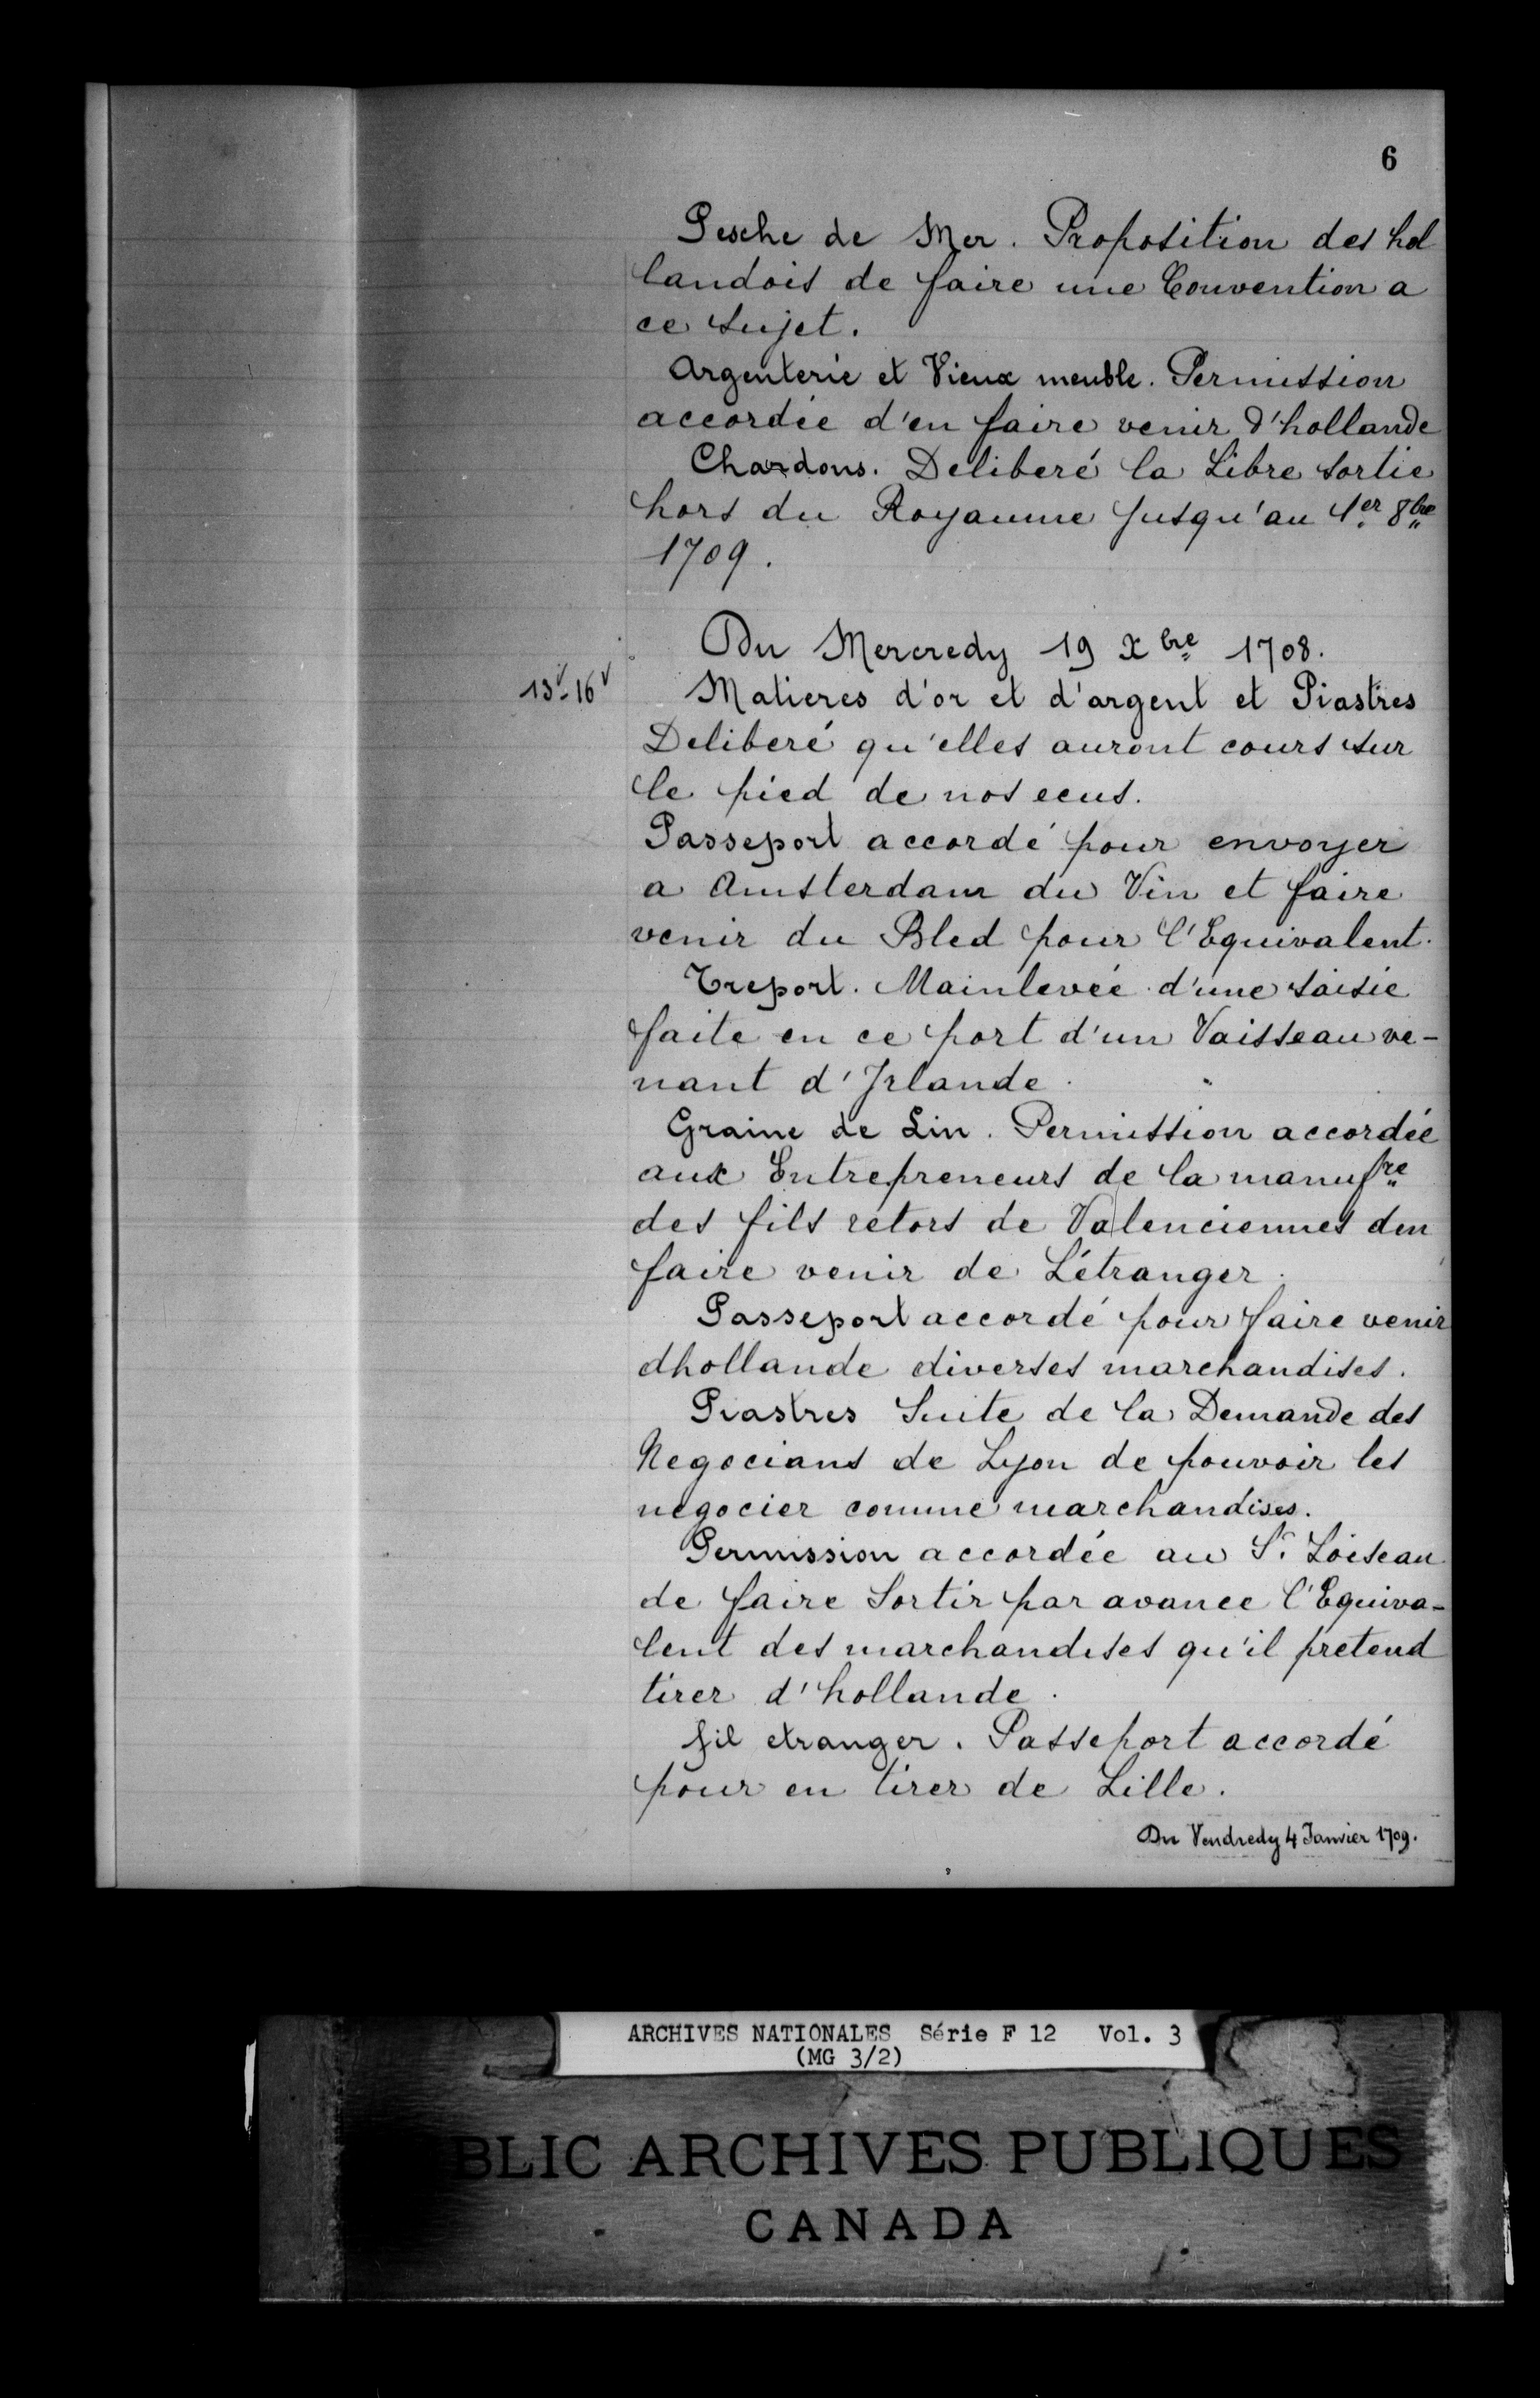 6
Pesche de Mer. Proposition des hol
landois de faire une Convention a
ce sujet.
Argenterie et Vieux meuble. Permission
accordée d'en faire venir d'hollande
Chardons. Deliberé la Libre sortie
hors du Royaume Jusqu'au 1er 8bre
1709.
Du Mercredy 19 Xbre 1708.
13v-16v
Matieres d'or et d'argent et Piastres
Deliberé qu'elles auront cours sur
le pied de nos ecus.
Passeport accordé pour envoyer
a Amsterdam du Vin et faire
venir du Bled pour l'Equivalent.
Treport. Mainlevée d'une saisie
faite en ce port d'un Vaisseau ve-
nant d'Irlande.
Graine de Lin. Permission accordée
aux Entrepreneurs de la manufre
des fils retors de Valenciennes den
faire venir de Létranger.
Passeport accordé pour faire venir
dhollande diverses marchandises.
Piastres Suite de la Demande des
Negocians de Lyon de pouvoir les
negocier comme marchandises.
Permission accordée au Sr. Loiseau
de faire Sortir par avance l'Equiva-
lent des marchandises qu'il pretend
tirer d'hollande.
fil etranger. Passeport accordé
pour en tirer de Lille.
Du Vendredy 4 Janvier 1709.
ARCHIVES NATIONALES Série F 12 Vol. 3
(MG 3/2)
BLIC ARCHIVES PUBLIQUES
CANADA